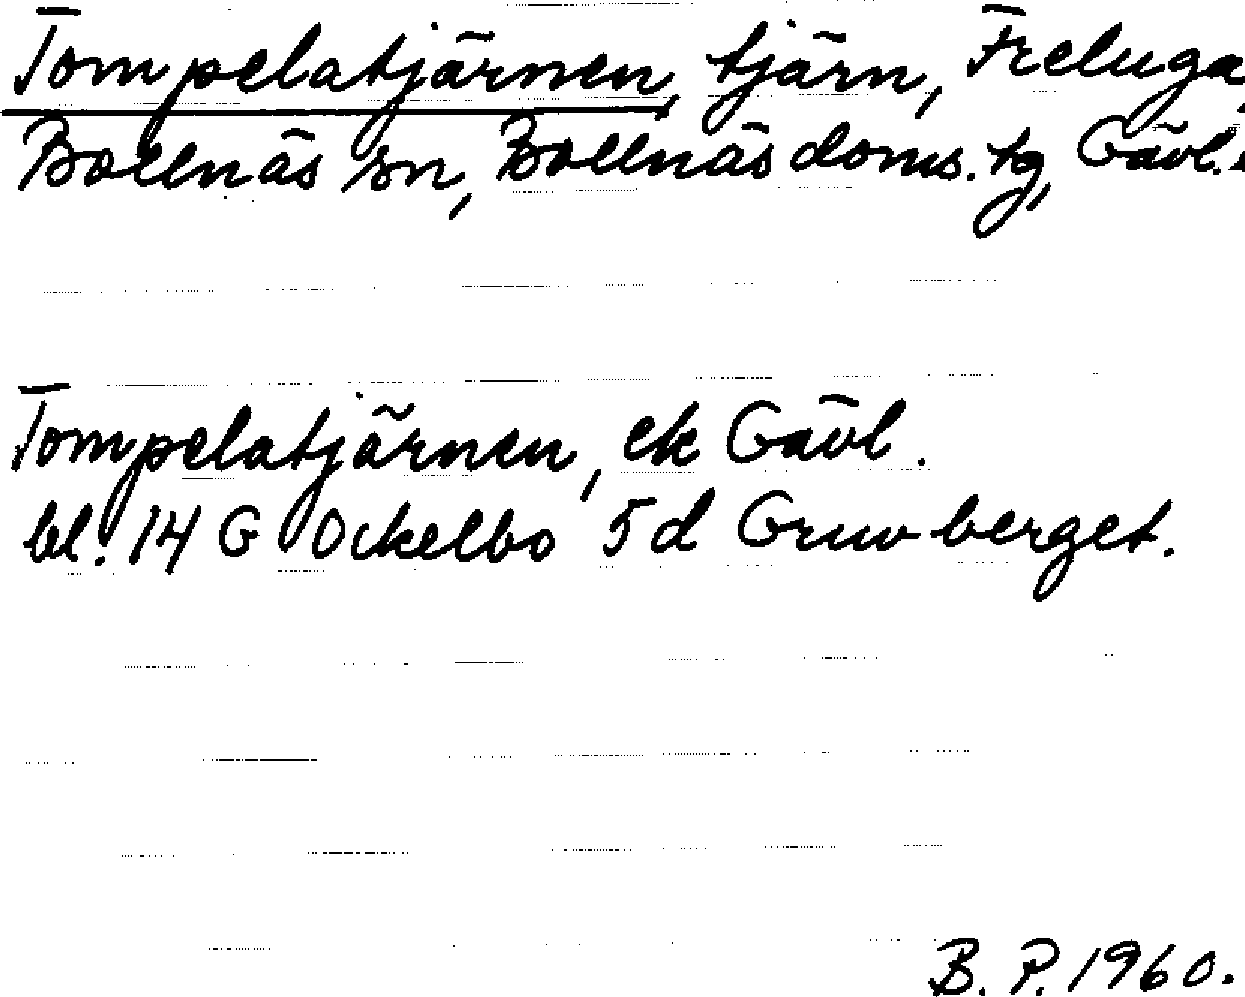 Tompelatjärnen, tjärn, Freluga,
Bollnäs sn, Bollnäs doms. tg, Gävl.
Tompelatjärnen, ek Gävl.
bl. 14 G Ockelbo 5d Gruvberget.
B. P. 1960.